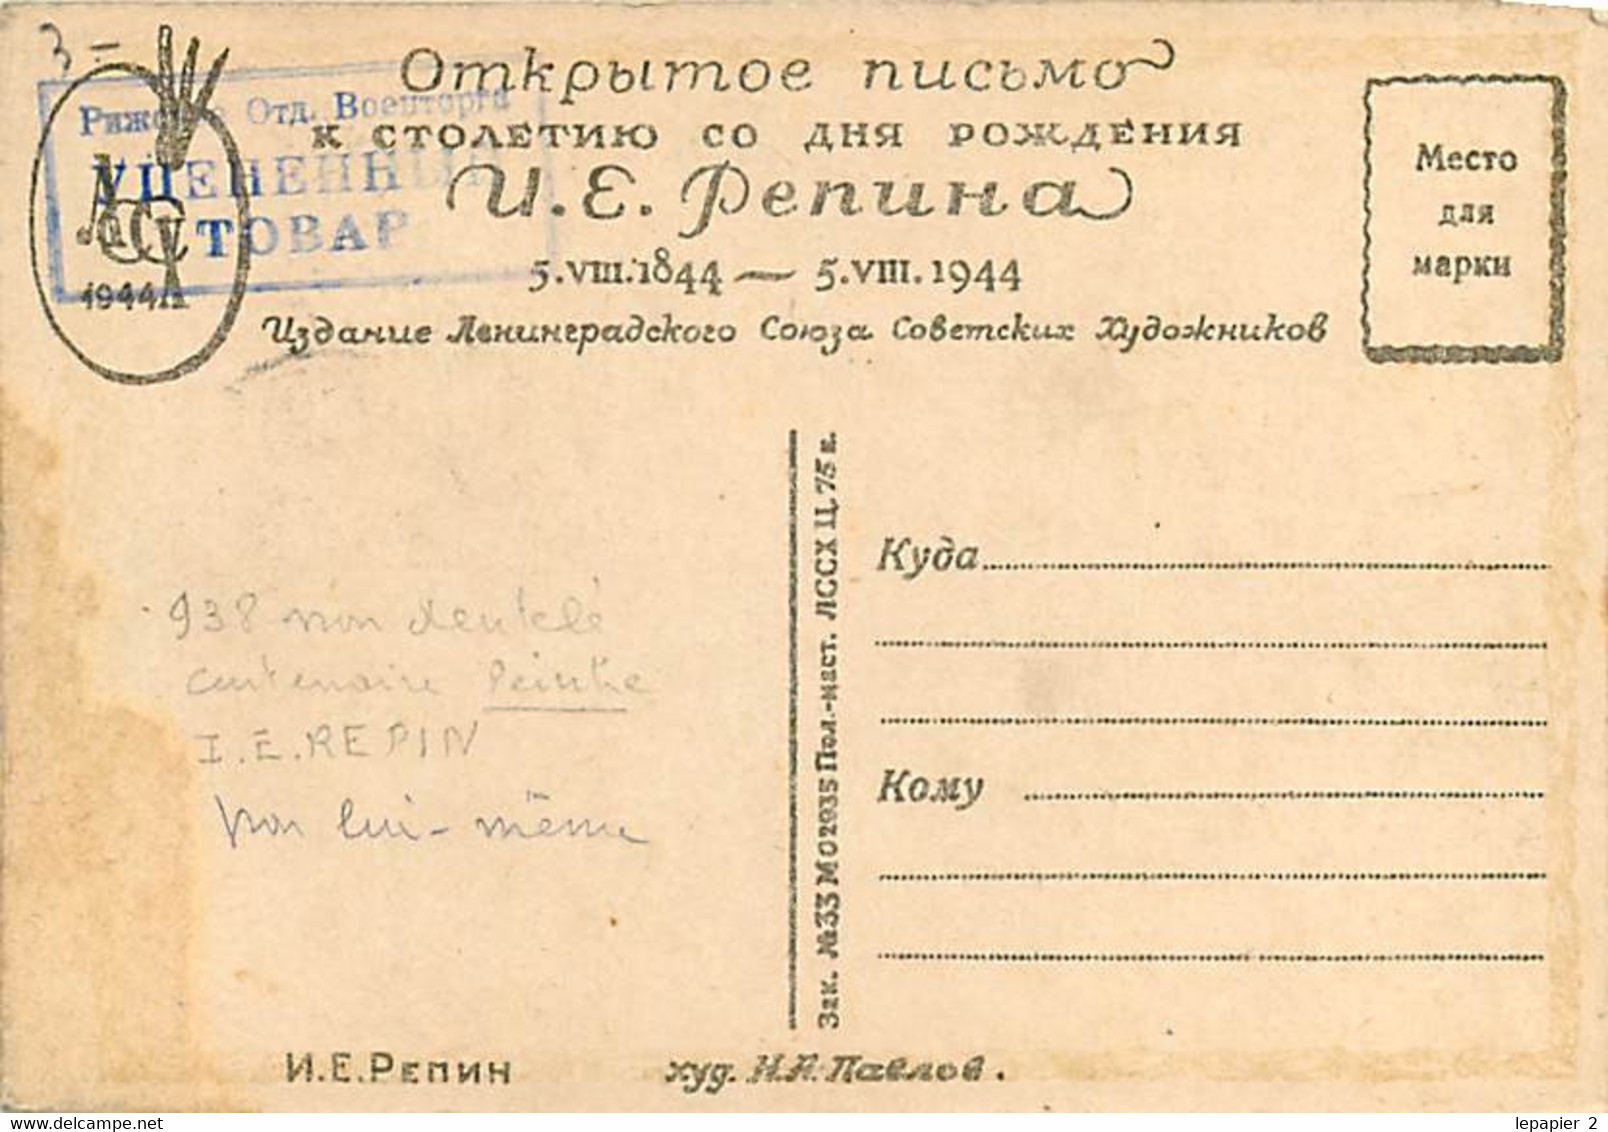 3 –
Открытое письмо
Рижское Отд. Военторга
УЦЕНЕННЫЙ
ТОВАР
К СТОЛЕТИЮ СО ДНЯ РОЖДЕНИЯ
И.Е. Репина
5.VIII.1844 — 5.VIII.1944
Издание Ленинградского Союза Советских Художников
ЛССХ
1944
Место
для
марки
Зак. №33 М 02935 Пол.-маст. ЛССХ Ц. 75 к.
Куда
Кому
938 non dentelé
centenaire Peintre
I.E. REPIN
par lui-même
И.Е.Репин
худ. Н.А. Павлов.
lepapier_2